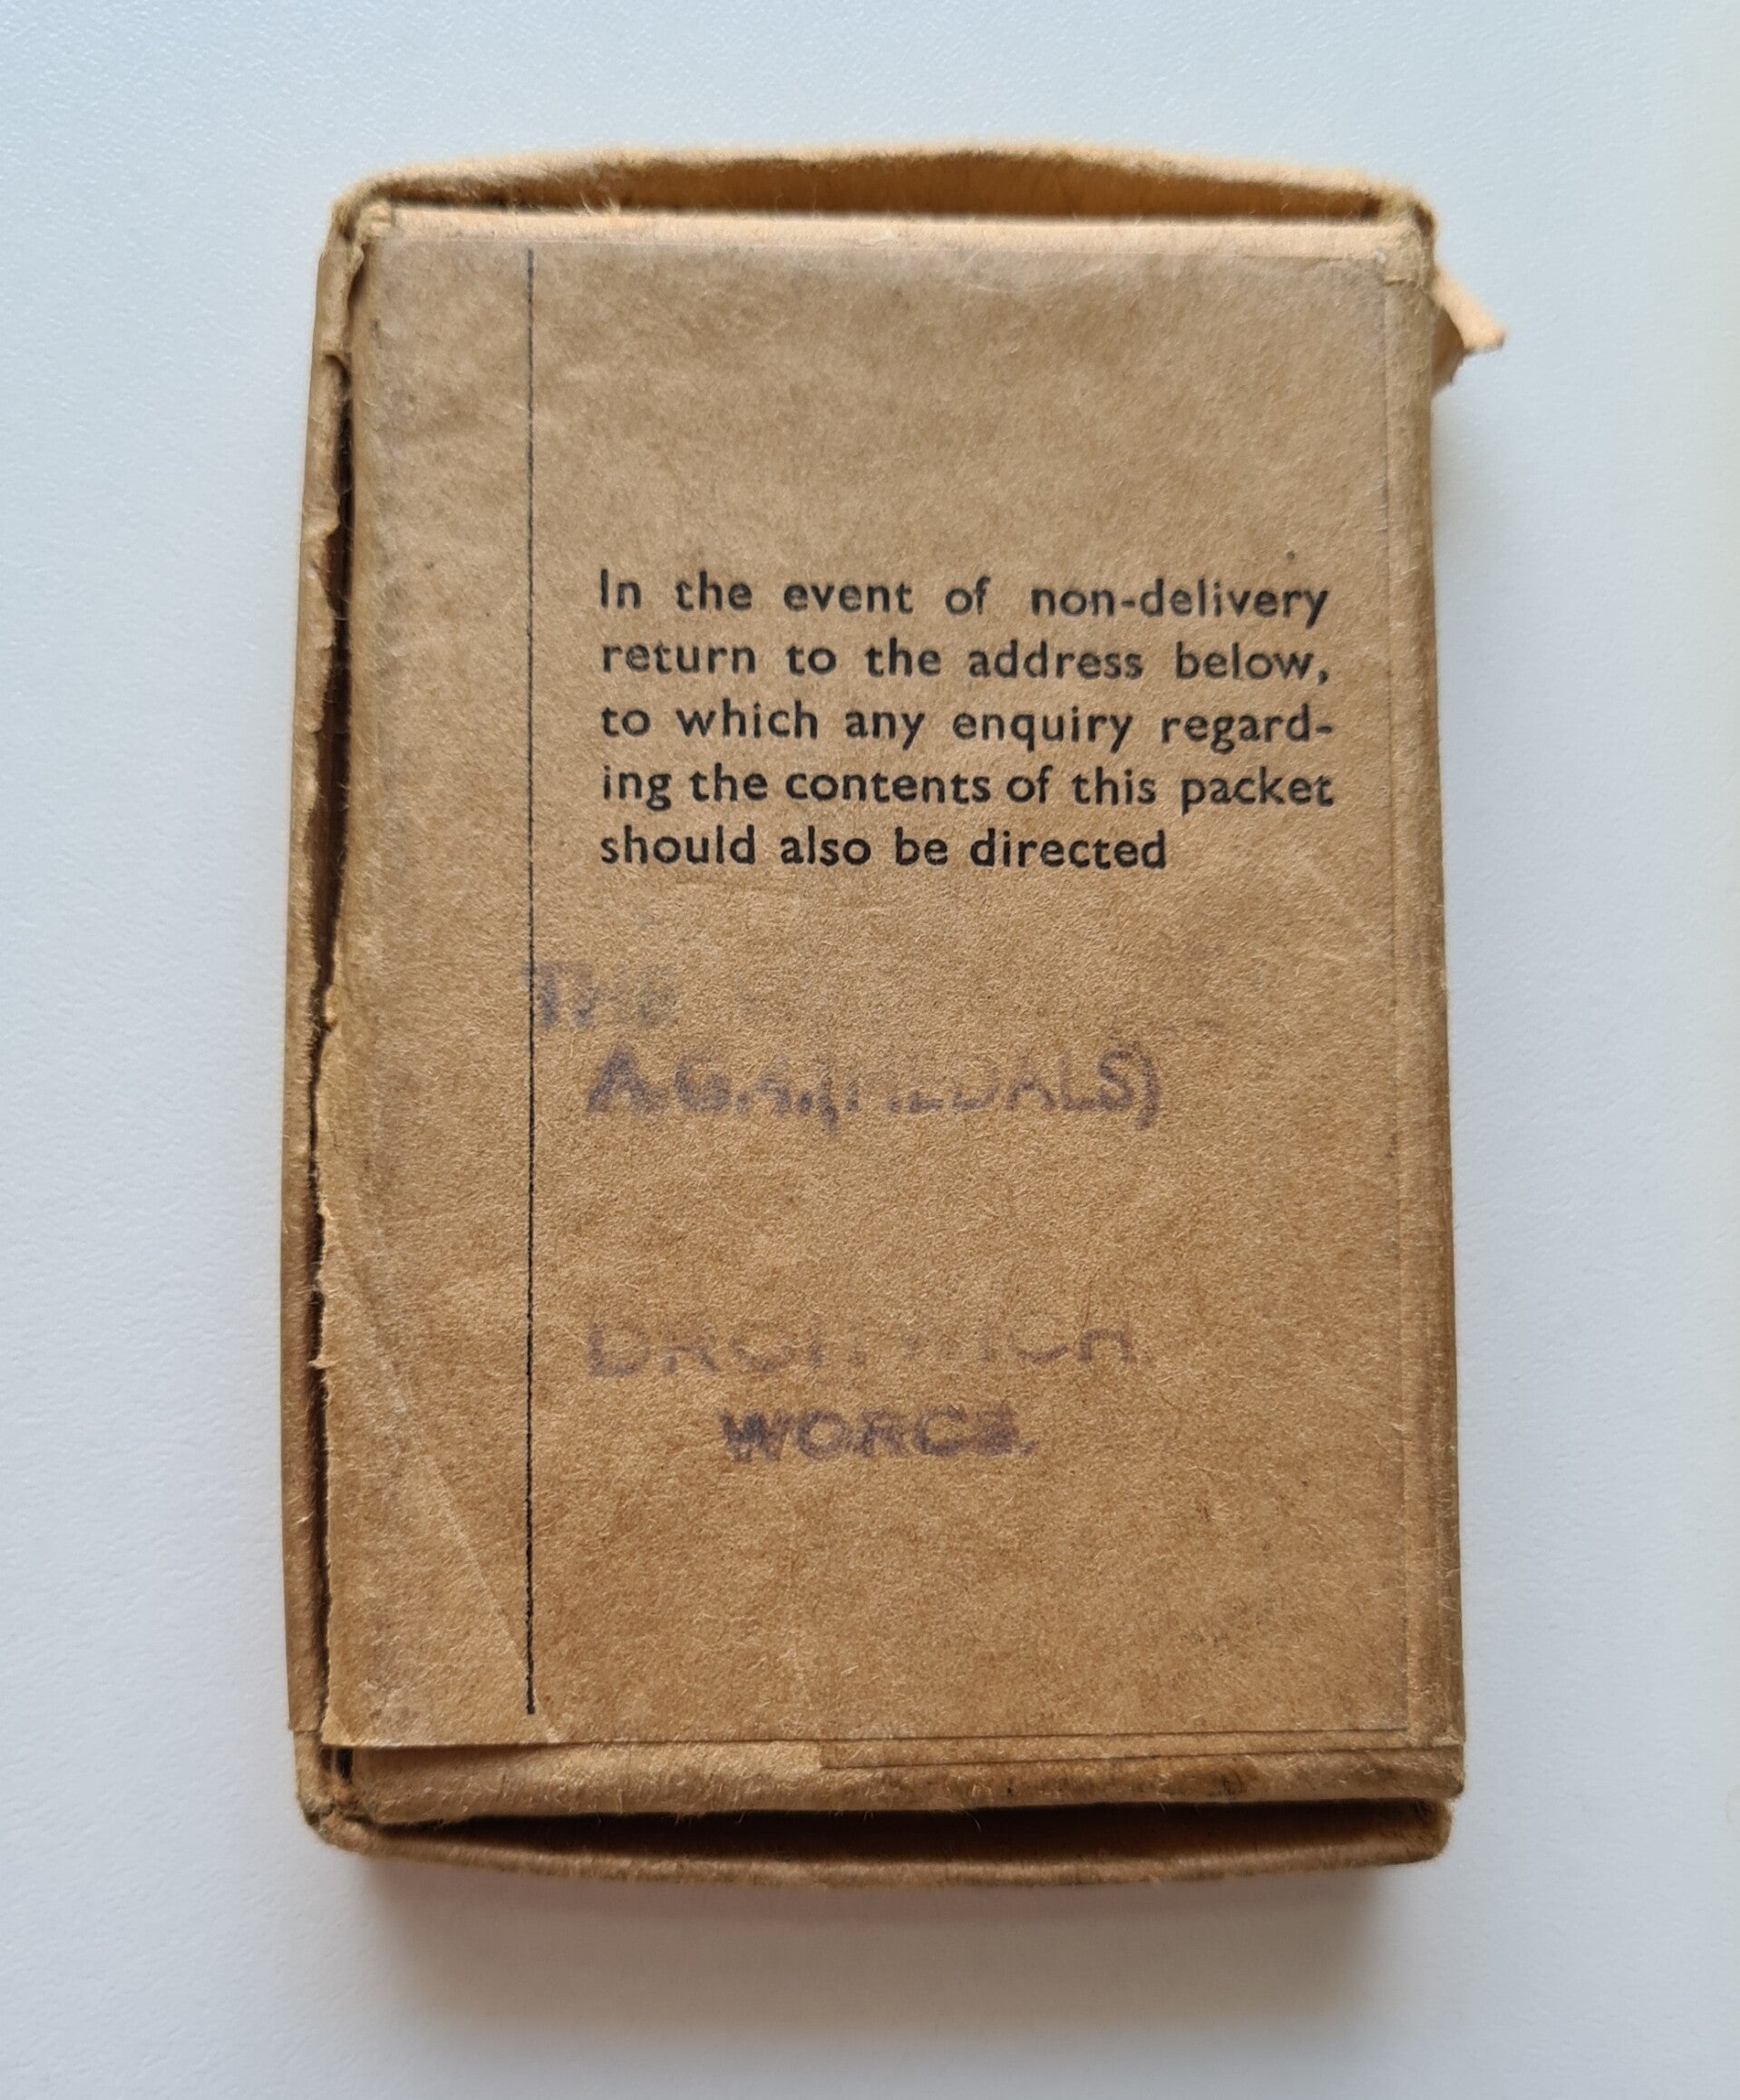 In the event of non-delivery
return to the address below,
to which any enquiry regard-
ing the contents of this packet
should also be directed
THE
(MEDALS)
DROITWICH.
WORCS.